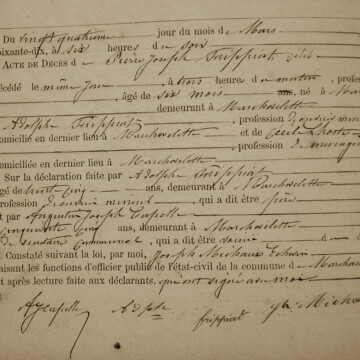 Du vingt quatrième jour du mois de Mars
oixante-dix, à six heures du soir
ACTE DE DÉCÈS de Pierre Joseph Frippiat,
écédé le même jour, à trois heures du matin, profes
, âgé de six mois ans, né à Mar
demeurant à Marchovelette
Adolphe Frippiat, profession d'ouvrier mine
omicilié en dernier lieu à Marchovelette et de Cécile
profession de ménagè
omiciliée en dernier lieu à Marchovelette
Sur la déclaration faite par Adolphe Frippiat
gé de trente cinq ans, demeurant à Marchovelette
rofession d'ouvrier mineur, qui a dit être père
t par Augustin Joseph Capelle
cinquante cinq ans, demeurant à Marchovelette
de secrétaire communal, qui a dit être voisin d
Constaté suivant la loi, par moi, Joseph Michaux
aisant les fonctions d'officier public de l'état-civil de la commune de Marchov
t après lecture faite aux déclarants, qui ont signé avec moi
A J Capelle Adphe frippiat Jh Micha